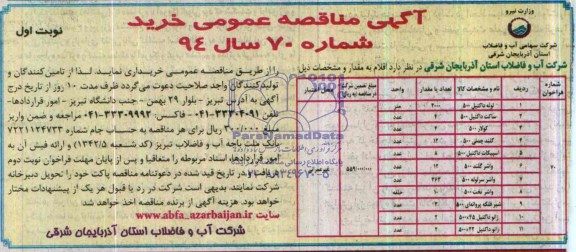 وزارت نیرو
شرکت سهامی آب و فاضلاب
استان آذربایجان شرقی
آگهی مناقصه عمومی خرید
شماره ۷۰ سال ۹۴
نوبت اول
شرکت آب و فاضلاب استان آذربایجان شرقی در نظر دارد اقلام به مقدار و مشخصات ذیل
را از طریق مناقصه عمومی خریداری نماید. لذا از تامین‌کنندگان و
تولیدکنندگان واجد صلاحیت دعوت می‌گردد ظرف مدت ۱۰ روز از تاریخ درج
آگهی به آدرس تبریز - بلوار ۲۹ بهمن - جنب دانشگاه تبریز - امور قراردادها-
تلفن: فاکس: ۳۳۳۰۹۹۹۲-۰۴۱ مراجعه و ضمن واریز
ریال برای هر مناقصه به حساب جام شماره ۷۲۲۱۱۲۴۷۳۳
بانک ملت باجه آب و فاضلاب تبریز (کدشعبه ۱۳۴۲/۵) و ارائه فیش آن به
امور قراردادها، اسناد مربوطه را متعاقبا و پس از پایان مهلت فراخوان نوبت دوم
دریافت و در تاریخ قید شده در دعوتنامه مناقصه پاکت خود را تحویل دبیرخانه
شرکت نمایند. بدیهی است شرکت در رد یا قبول هر یک از پیشنهادات مختار
خواهد بود. هزینه آگهی از برنده مناقصه اخذ خواهد شد.
سایت www.abfa_azarbaijan.ir
شرکت آب و فاضلاب استان آذربایجان شرقی
شماره فراخوان ردیف نام و مشخصات کالا تعداد یا مقدار واحد
۷۰
۱ لوله داکتیل ۵۰۰ ۲۰۰۰ متر
۲ ساکت داکتیل ۵۰۰ ۴ عدد
۳ کولار ۵۰۰ ۴ عدد
۴ گلند چدنی ۵۰۰ ۱۲ عدد
۵ اسپیکات داکتیل ۵۰۰ ۴ عدد
۶ واشر گلند ۵۰۰ ۱۲ عدد
۷ واشر سرلوله ۵۰۰ ۳۶۳ عدد
۸ واشر تخت ۵۰۰ حلقه
۹ شیر فلکه پروانه‌ای ۵۰۰ عدد
۱۰ زانو داکتیل ۴۵×۵۰۰ ۲ عدد
۱۱ زانو داکتیل ۲۲×۵۰۰ ۲ عدد
ParsNamadData
پایگاه اطلاع رسانی
۰۲۱-۸۸۳۴۹۶۷۰-۵